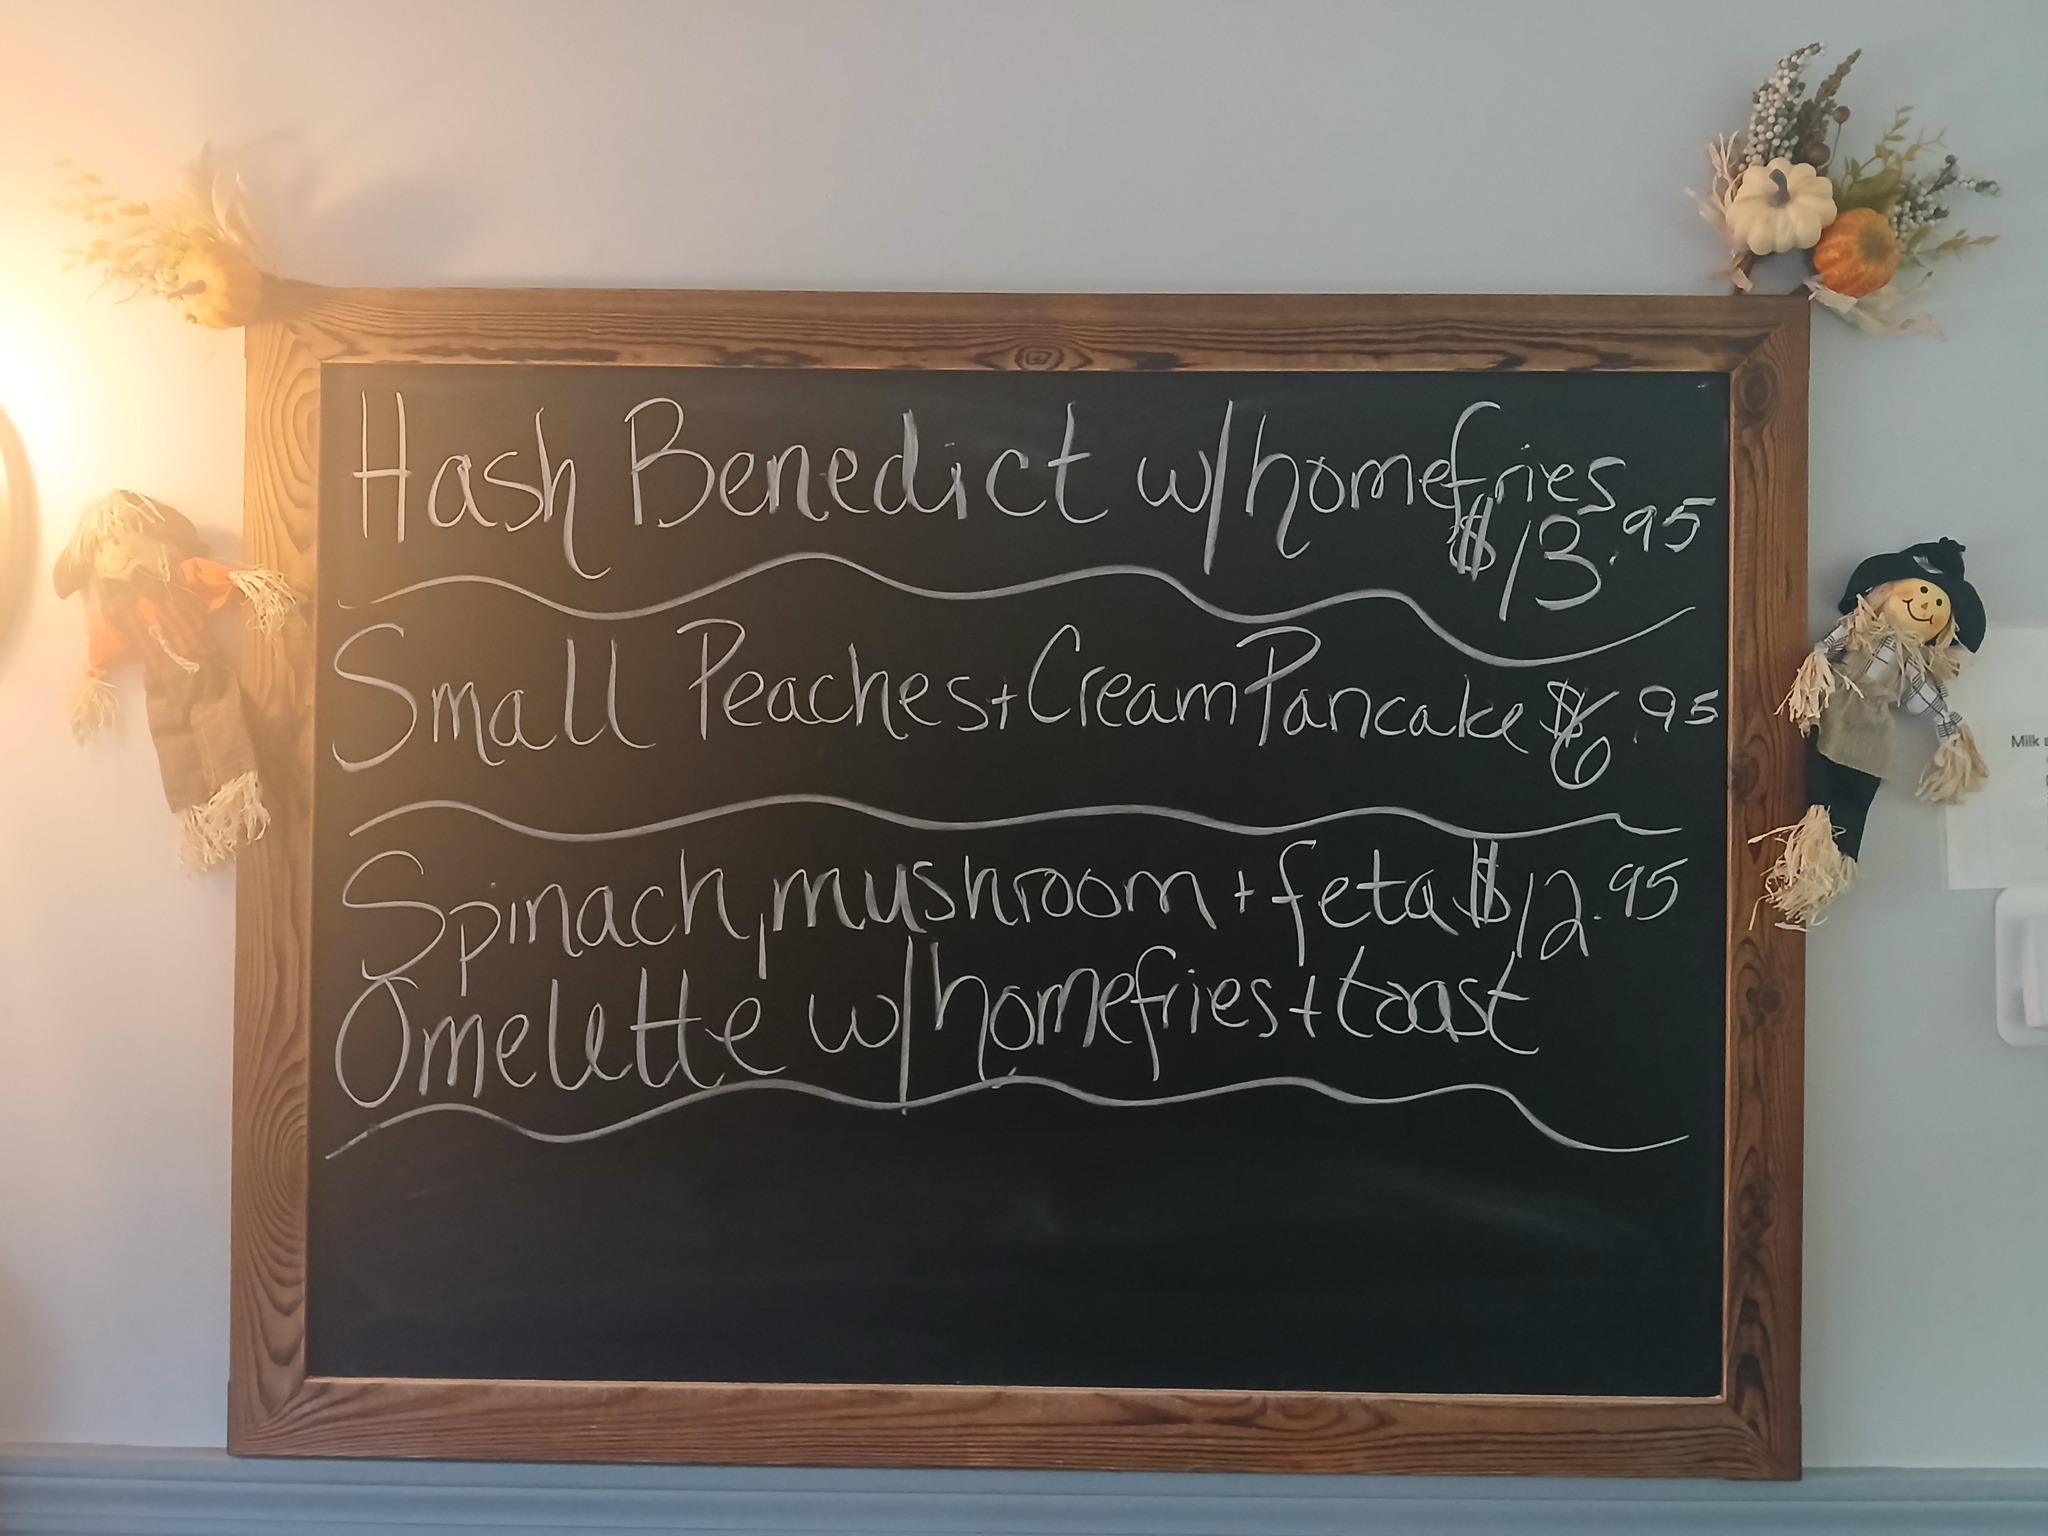 Hash Benedict w/homefries
$13.95
Small Peaches + Cream Pancake $6.95
Spinach, mushroom + feta $12.95
Omelette w/homefries + toast
Milk